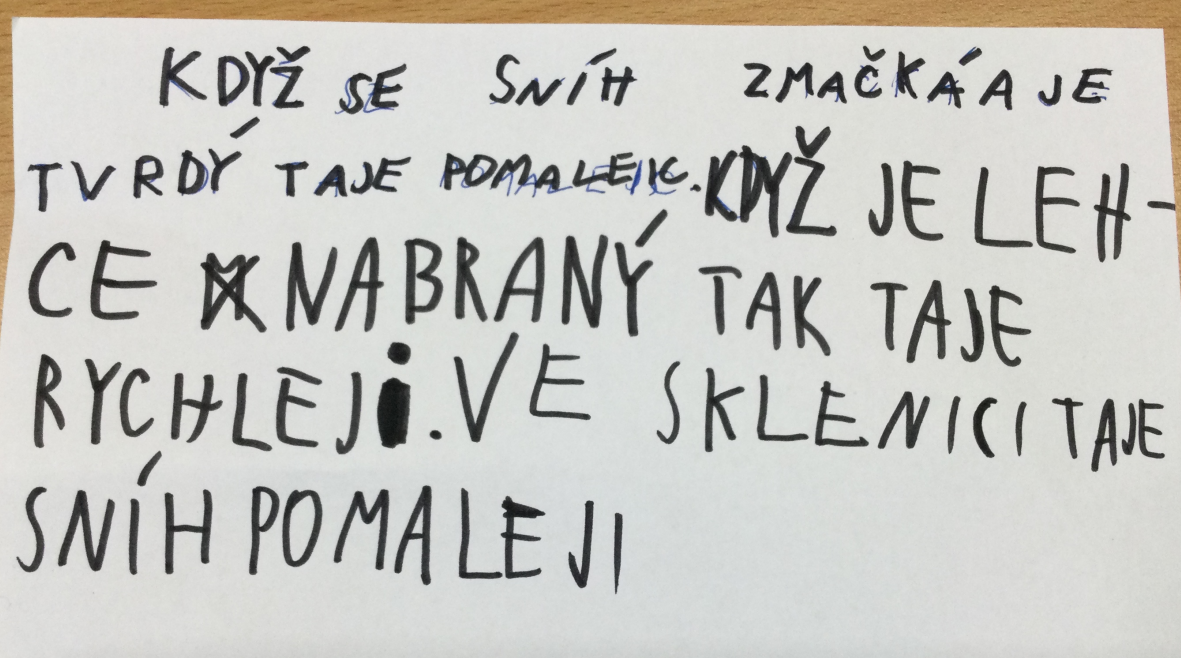 KDYŽ SE SNÍH ZMAČKÁ A JE
TVRDÝ TAJE POMALEJC. KDYŽ JE LEH-
CE NABRANÝ TAK TAJE
RYCHLEJi. VE SKLENICI TAJE
SNÍH POMALEJI